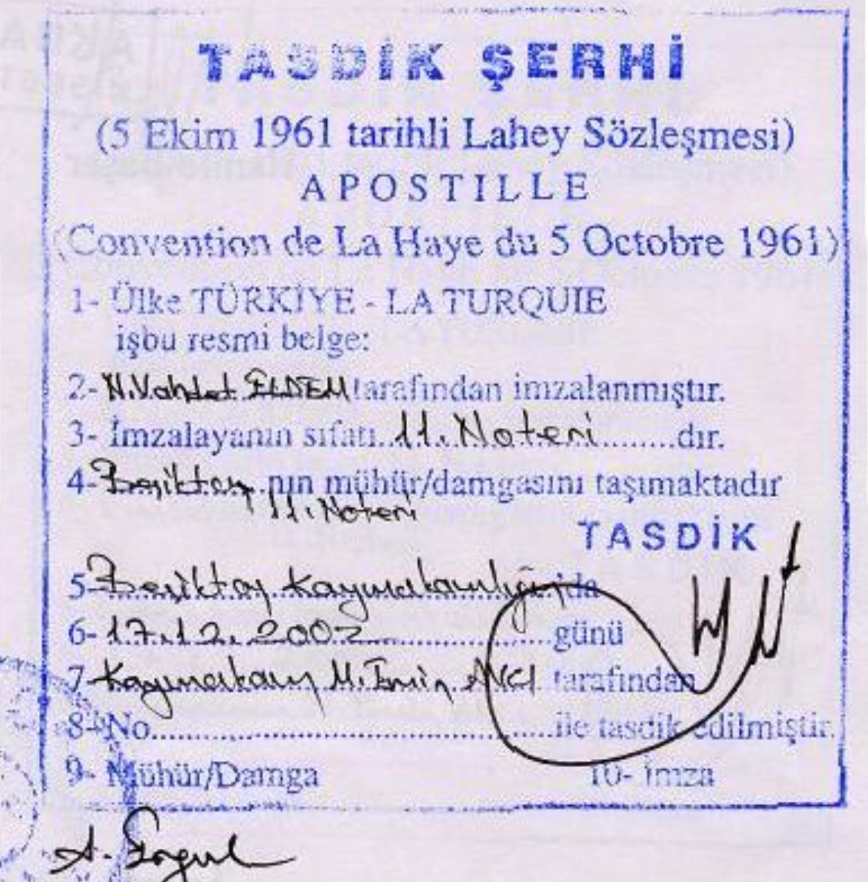 TASDİK ŞERHİ
(5 Ekim 1961 tarihli Lahey Sözleşmesi)
APOSTILLE
(Convention de La Haye du 5 Octobre 1961)
1- Ülke TÜRKİYE - LA TURQUIE
işbu resmi belge:
2- N.Vahdet ELDEM tarafından imzalanmıştır.
3- İmzalayanın sıfatı..11. Noteri.........dır.
4- Beşiktaş nın mühür/damgasını taşımaktadır
11. Noteri
TASDİK
5- Beşiktaş Kaymakamlığı'da
6- 17.12.2002..................günü
7- Kaymakam M. Emin AVCI tarafından
8- No..............................................ile tasdik edilmiştir.
9- Mühür/Damga 10- İmza